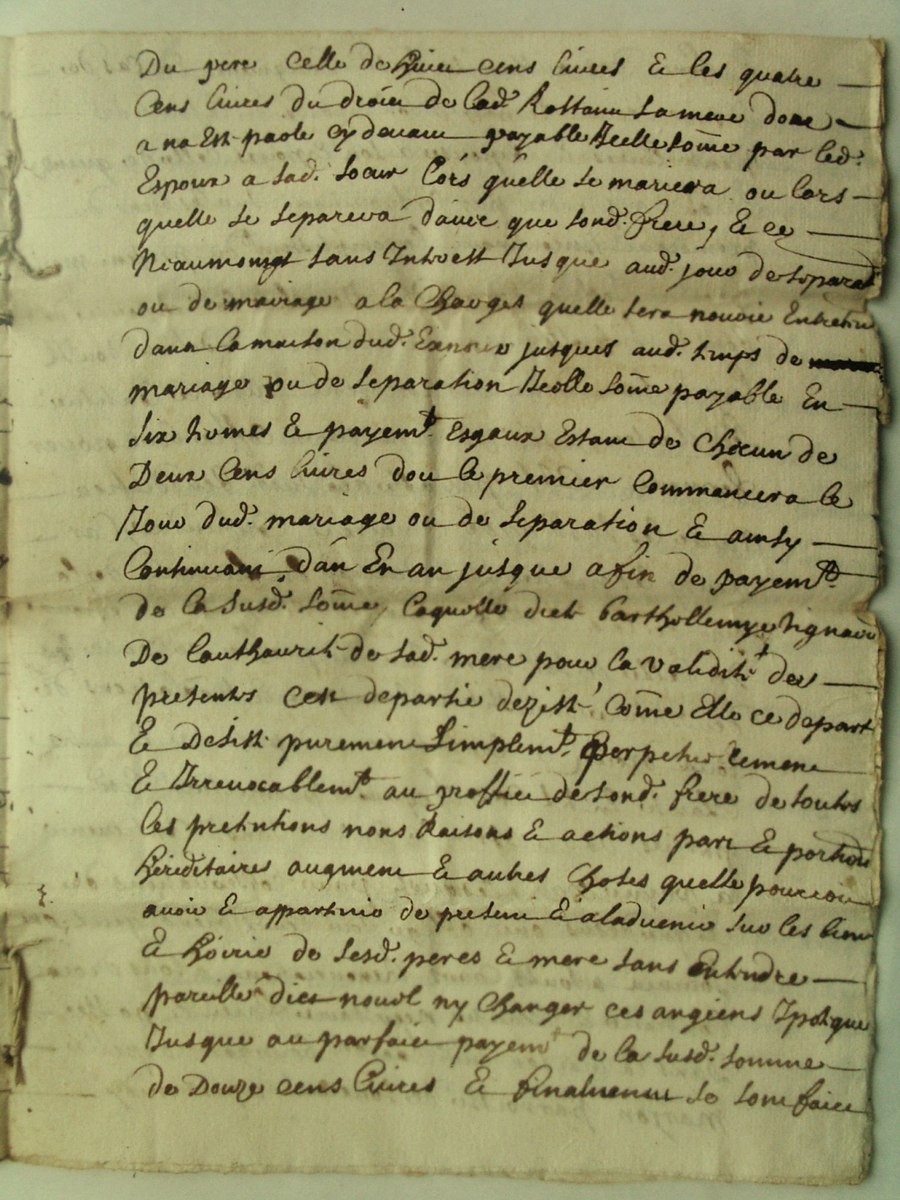 Du pere celle de huict cens livres & les quatre
Cens livres du droict de lad. Rostaine sa mere dont
a na Est parle cy devant payable Icelle somē par led.
Espoux a sad. soeur Lórs quelle se mariera ou lors
quelle se separera davec que sond. frere, & ce
Neaumoingt sans Interest Jusque aud. jour de separat
ou de mariage a la Charges quelle sera nourie Entretenu
dans la maison dud. jusques aud. temps de
mariage ou de separation Icelle somē payable En
six termes & payemt. Esgaux Estant de Chacun de
Deux Cens livres dou le premier Commencera le
Jour dud. mariage ou de separation & ainsy
Continuant dán En an jusque a fin de payemt.
de la susd. somē, Laquelle dicte Barthollemye Vignave
De lauthaurité de sad. mere pour la validité des
presentes cest departie dezisté Comē Elle ce depart
& Desist purement simplemt. perpetuelement
& Irrevocablemt. au proffict de sond. frere de toutes
Les pretentions noms Raisons & actions part & portions
Hereditaires augment & autres Choses quelle pourroit
avoir & appartenir de present & a ladvenir sur les biens
& hoirie de sesd. peres & mere sans Entendre
pareille dict nouvl ny Changer ces angiens Ipoteque
Jusque au parfaict payemt de la susd. somme
de Douze cens livres & finalement se sont faict